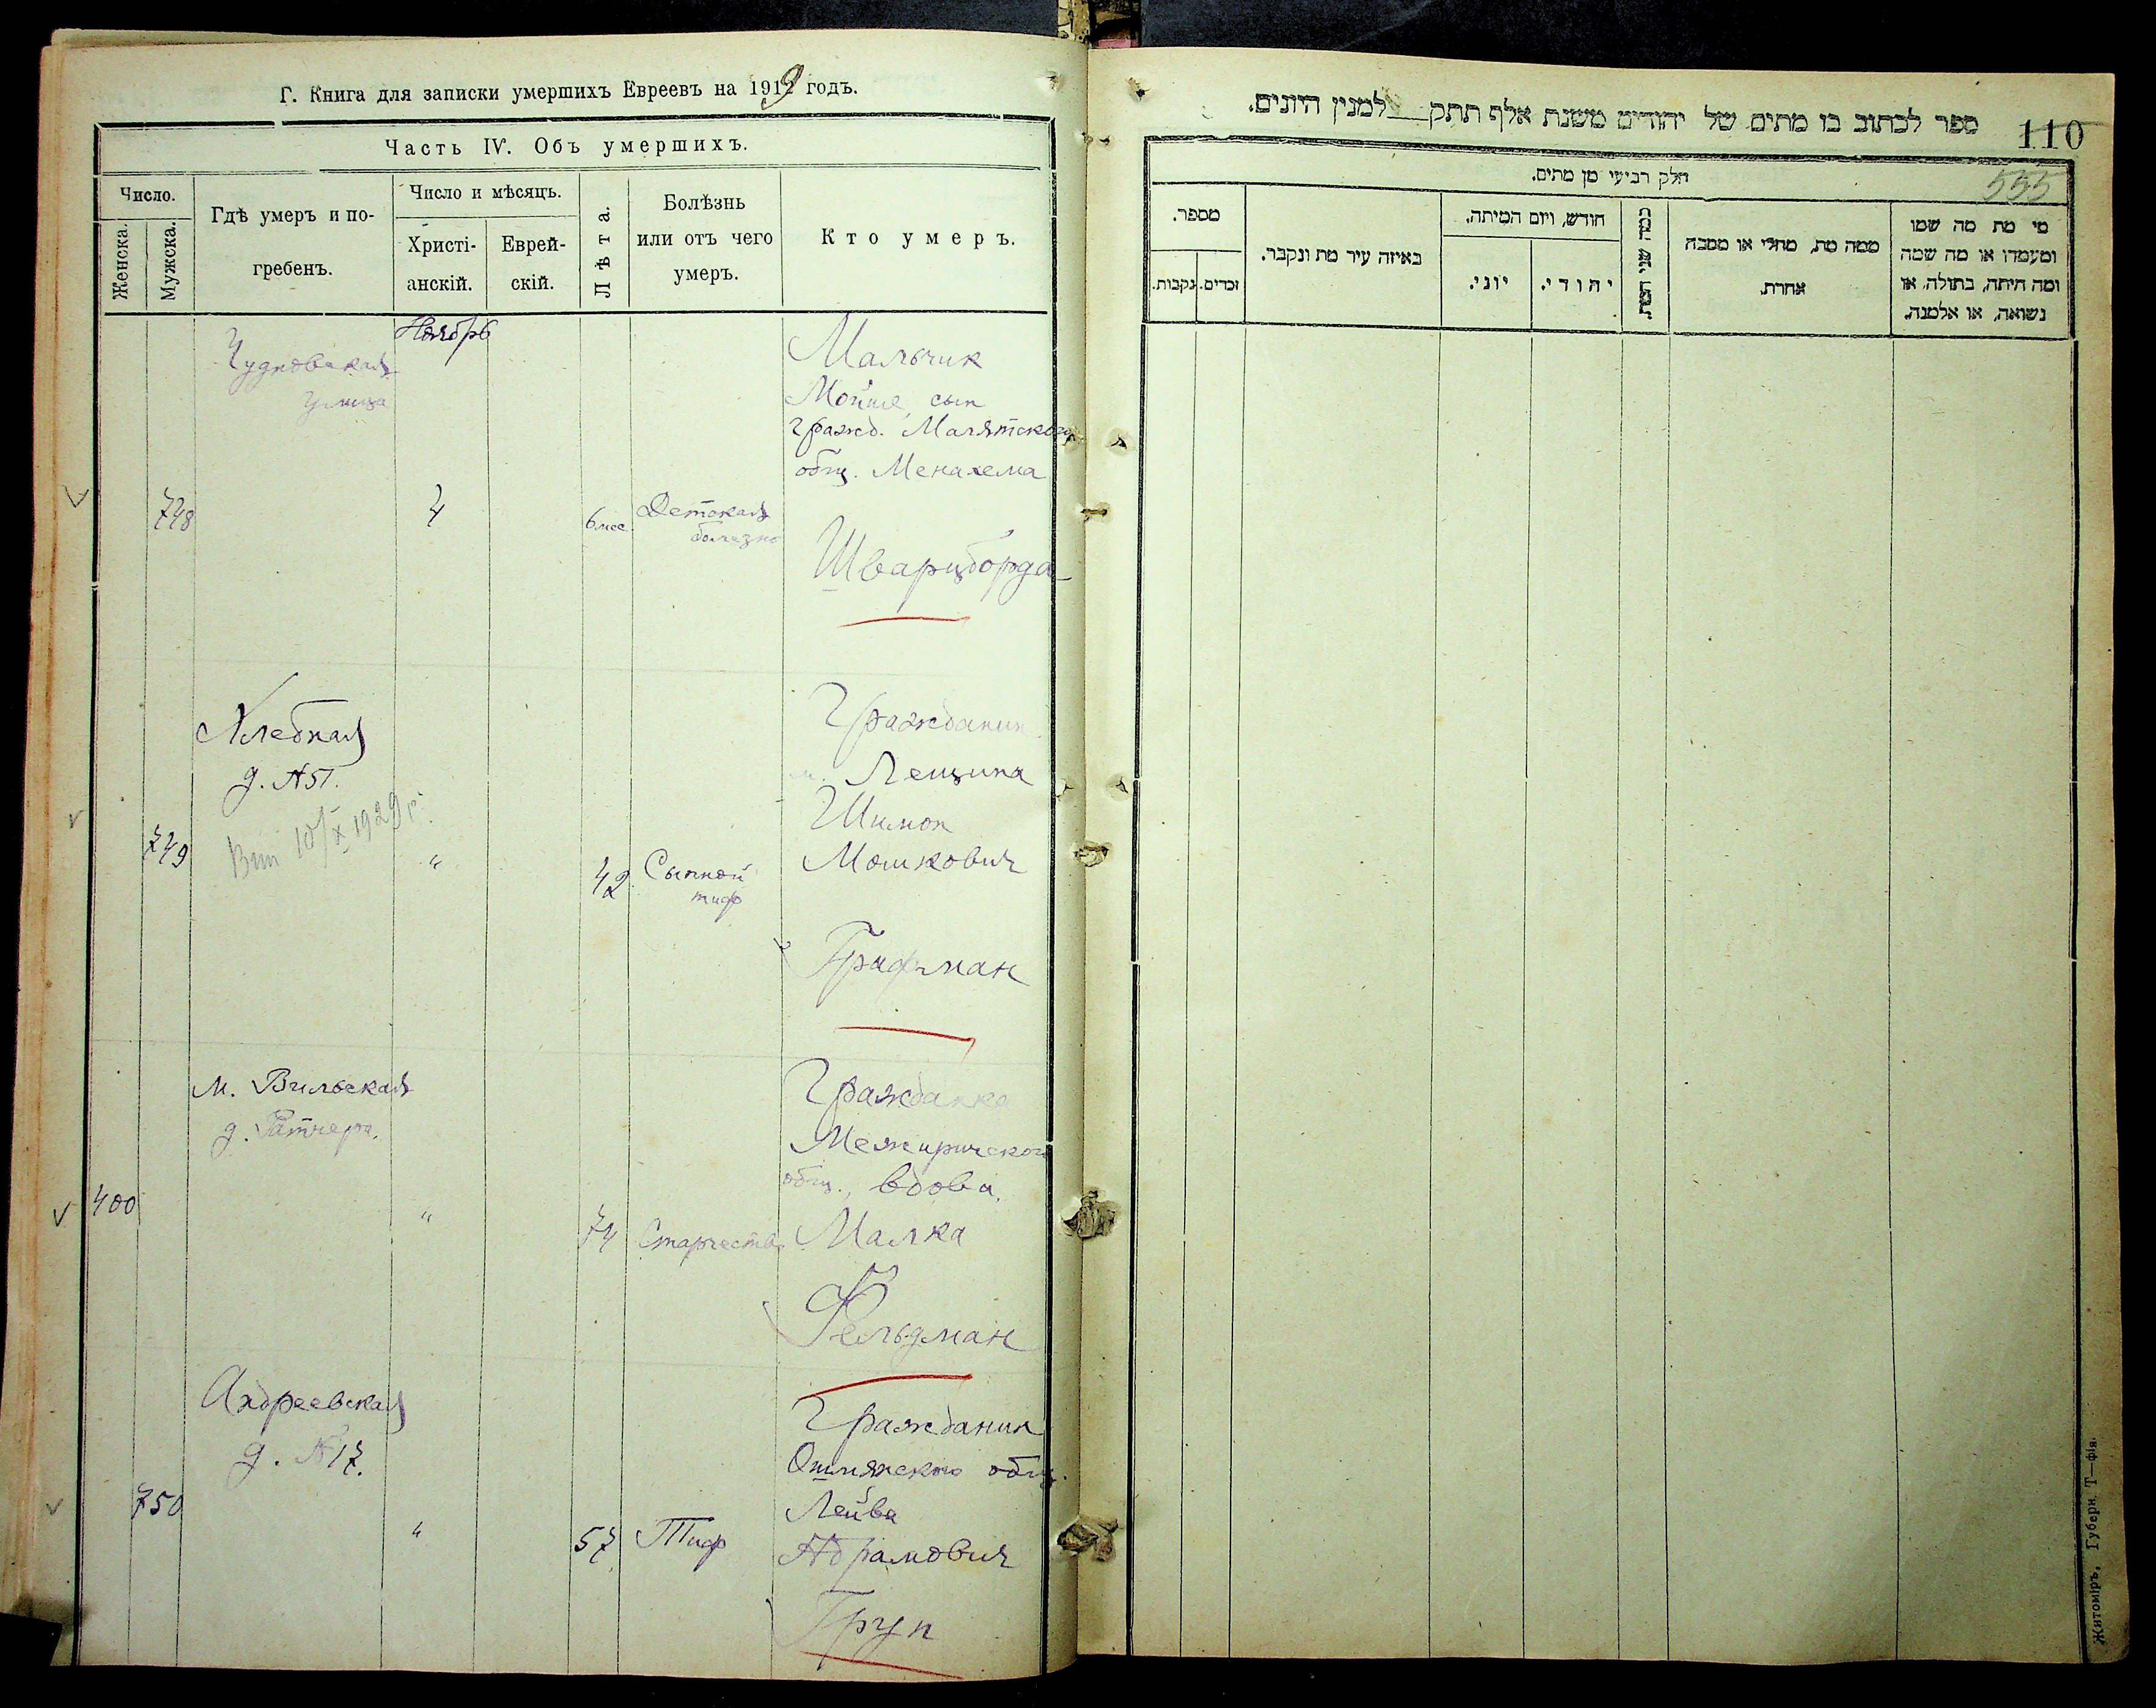 Г. Книга для записки умершихъ Евреевъ на 1919 годъ.
Часть IV. Объ умершихъ.
Число.
Женска.
Мужска.
Гдѣ умеръ и по-
гребенъ.
Число и мѣсяцъ.
Христі-
анскій.
Еврей-
скій.
Лѣта.
Болѣзнь
или отъ чего
умеръ.
Кто умеръ.
Ноябрь
748
Чудновская
улица
4
6 мес
Детская
болезнь
Мальчик
Мойше, сын
гражд.
общ. Менахема
Шварцборда
749
Хлебная
д. №51.
10/X 1929 г.
"
42
Сыпной
тиф
Гражданин
м. Лещина
Шимон
Мошкович
Графман
400
М. Вильская
д.
"
74
Старчество
Гражданка
Межиричского
общ., вдова,
Малка
Фельдман
750
Андреевская
д. №17.
"
57
Тиф
Гражданин
Ошмянского общ.
Лейба
Абрамович
Грун
110
555
ספר לכתוב בו מתים של יהודים משנת אלף תתק למנין היונים.
חלק רביעי מן מתים.
מספר.
זכרים.
נקבות.
באיזה עיר מת ונקבר.
חודש, ויום המיתה.
יהודי.
יוני.
כמה שני המת.
ממה מת, מחלי או מסבה
אחרת.
מי מת מה שמו
ומעמדו או מה שמה
ומה היתה, בתולה, או
נשואה, או אלמנה.
Житоміръ, Губерн. Т—фія.